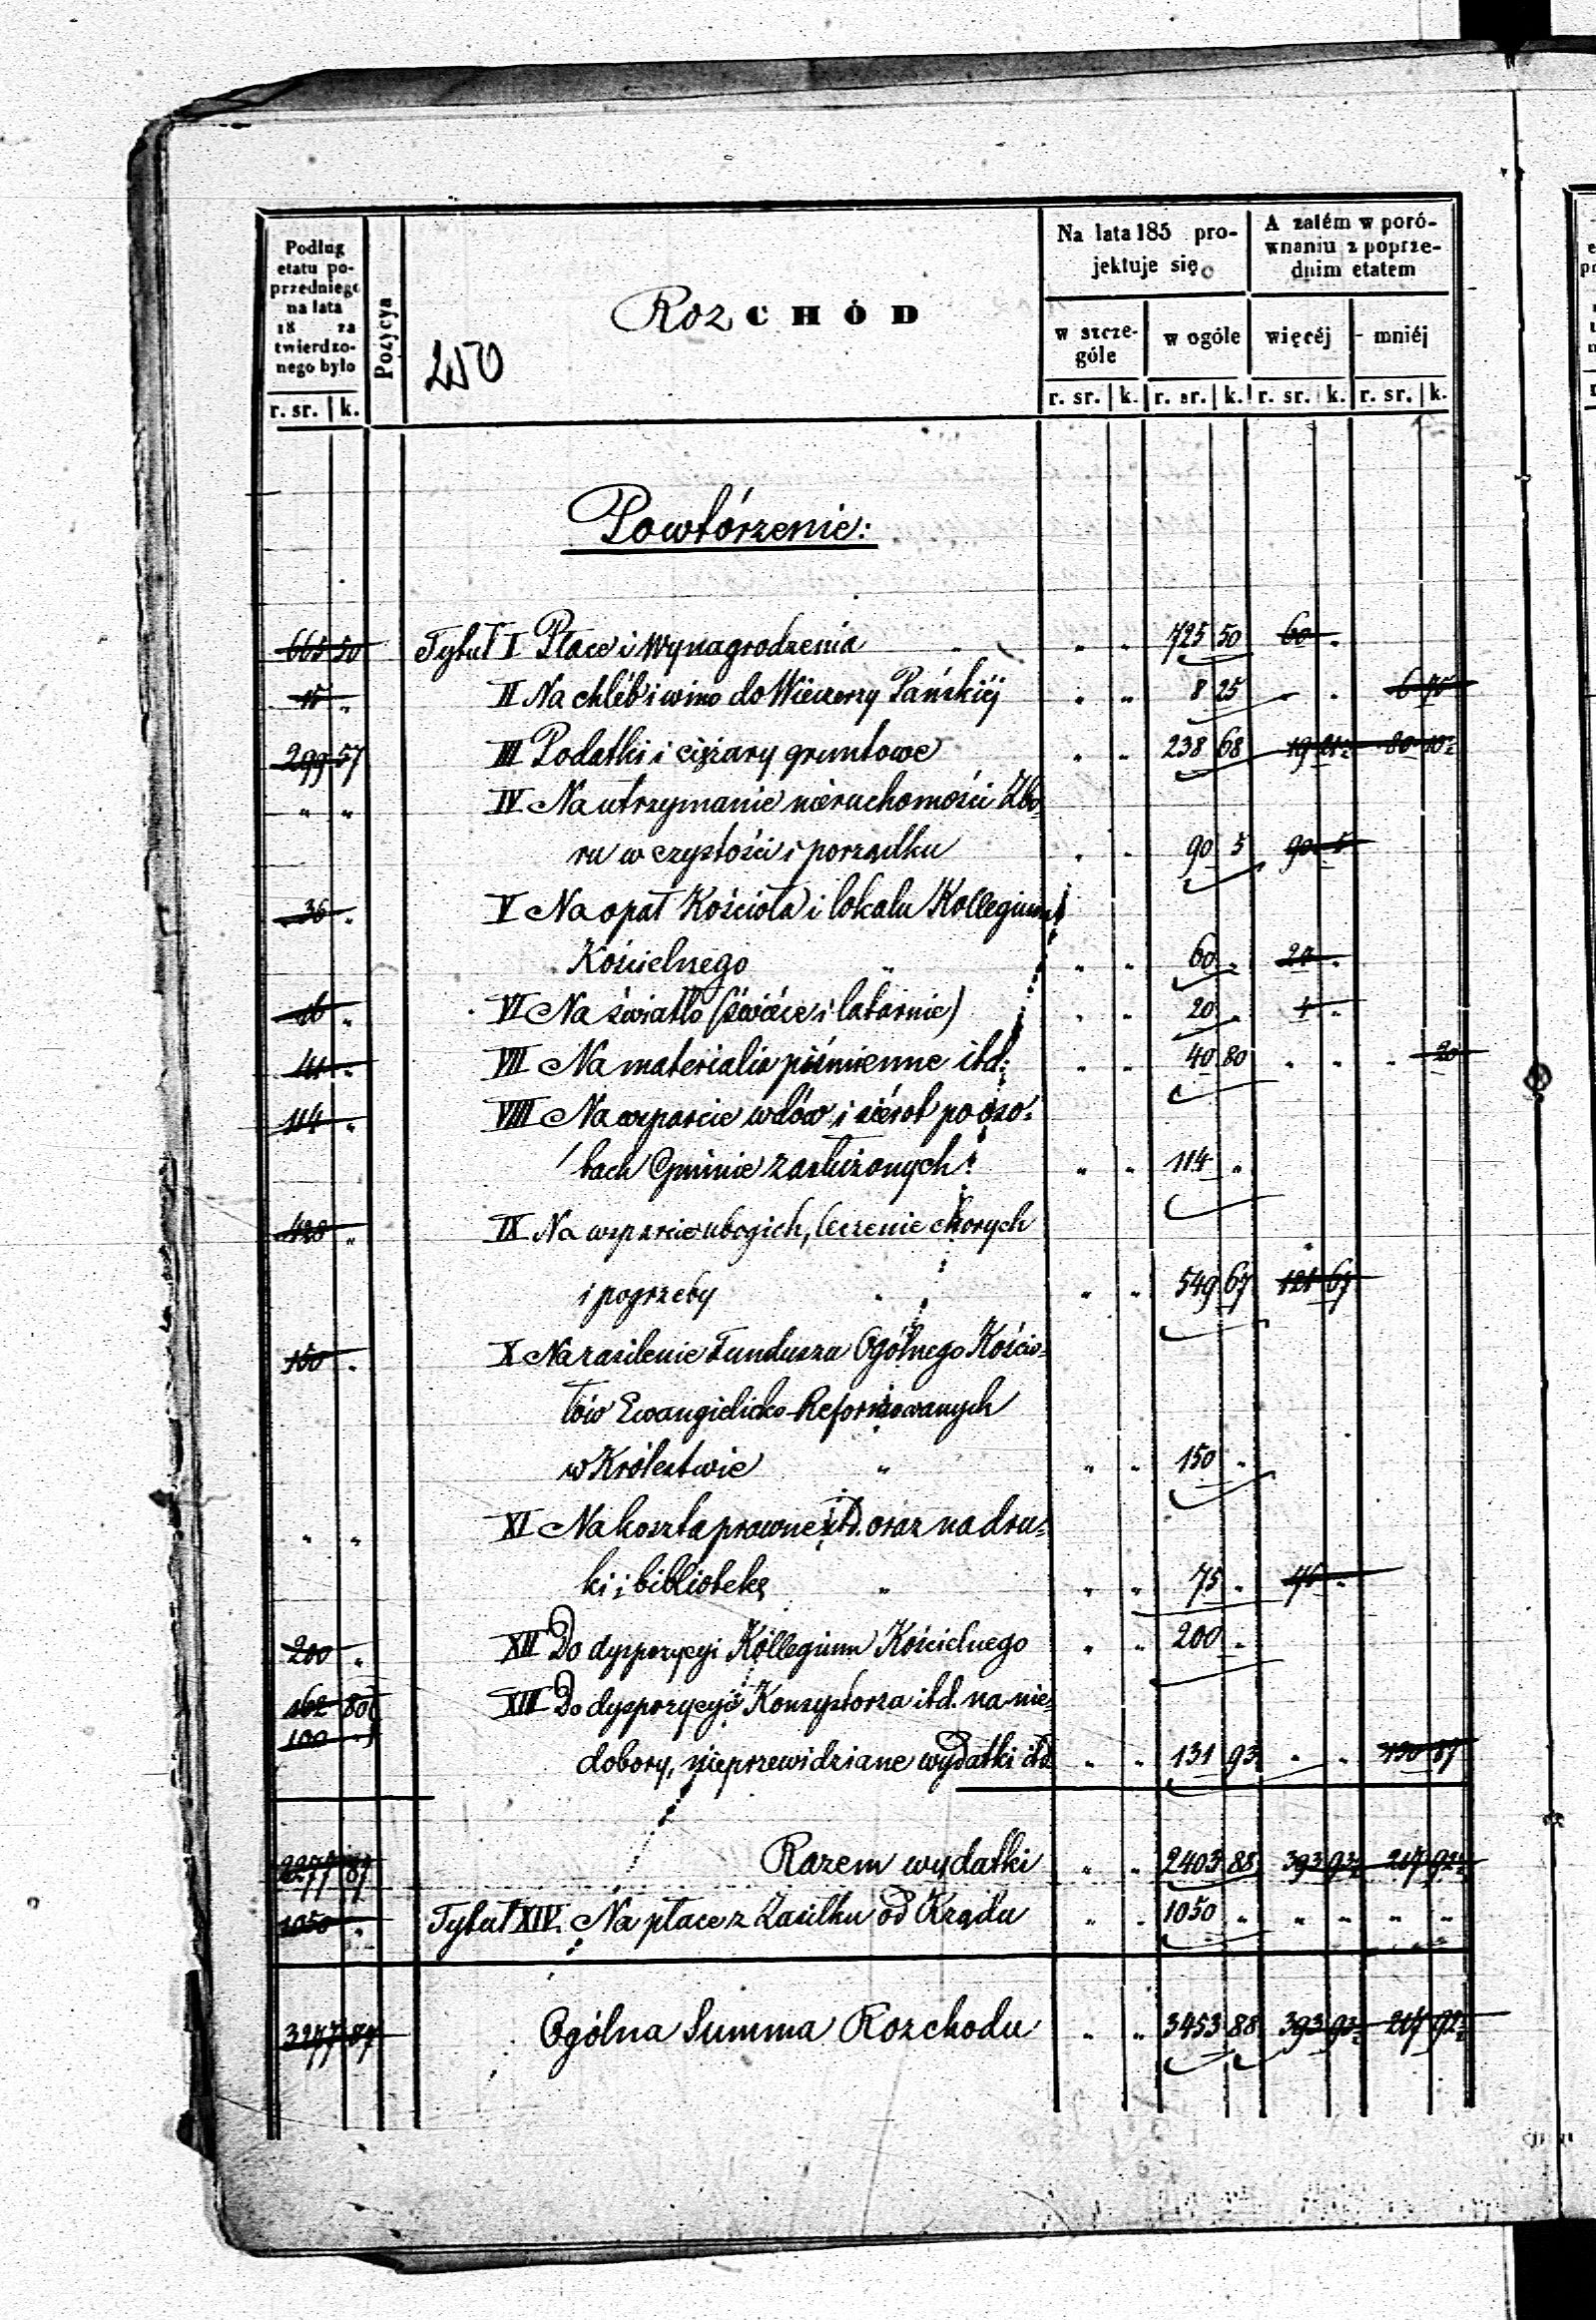 Podług etatu poprzedniego na lata 18 za twierdzonego było
Pozycya
250
RozCHÓD
Na lata 185 projektuje się
A zatém w porównaniu z poprzednim etatem
w szczególe
w ogóle
więcéj
mniéj
r. sr. k. r. sr. k. r. sr. k. r. sr. k. r. sr. k.
Powtórzenie:
665 50 Tytuł I Płace i Wynagrodzenia " " 725 50 60 "
15 " II Na chléb i wino do Wieczerzy Pańskiéj " " 8 25 " " 6 75
299 57 III Podatki i ciężary gruntowe " " 238 68 19 21½ 80 10½
" " IV Na utrzymanie nieruchomości Zbo-
ru w czystości i porządku " " 90 5 90 5
36 " V Na opał Kościoła i lokalu Kollegium
Kościelnego " " " 60 " 24 "
16 " VI Na światło (świéce i latarnie) " " 20 " 4 "
41 " VII Na materialia piśmienne itd. " " 40 80 " " " 20
114 " VIII Na wsparcie wdów i siérot po oso-
bach Gminie zasłużonych " " 114 "
428 " IX Na wsparcie ubogich, leczenie chorych
i pogrzeby " " " 549 67 121 67
150 " X Na zasilenie Funduszu Ogólnego Kościo-
łów Ewangielicko-Reformowanych
w Królestwie " " " 150 "
" " XI Na koszta prawne itd. oraz na dru-
ki i bibliotekę " " " 75 " 75 "
200 " XII Do dyspozycyi Kollegium Kościelnego " " 200 "
162 80 XIII Do dyspozycyi Konsystorza itd. na nie-
100 " dobory, nieprzewidziane wydatki itd " " 131 93 " " 130 87
2277 87 Razem wydatki " " 2403 88 393 93½ 217 92½
1050 " Tytuł XIV. Na płace z Zasiłku od Rządu " " 1050 " " " " "
3277 87 Ogólna Summa Rozchodu " " 3453 88 393 93½ 217 92½